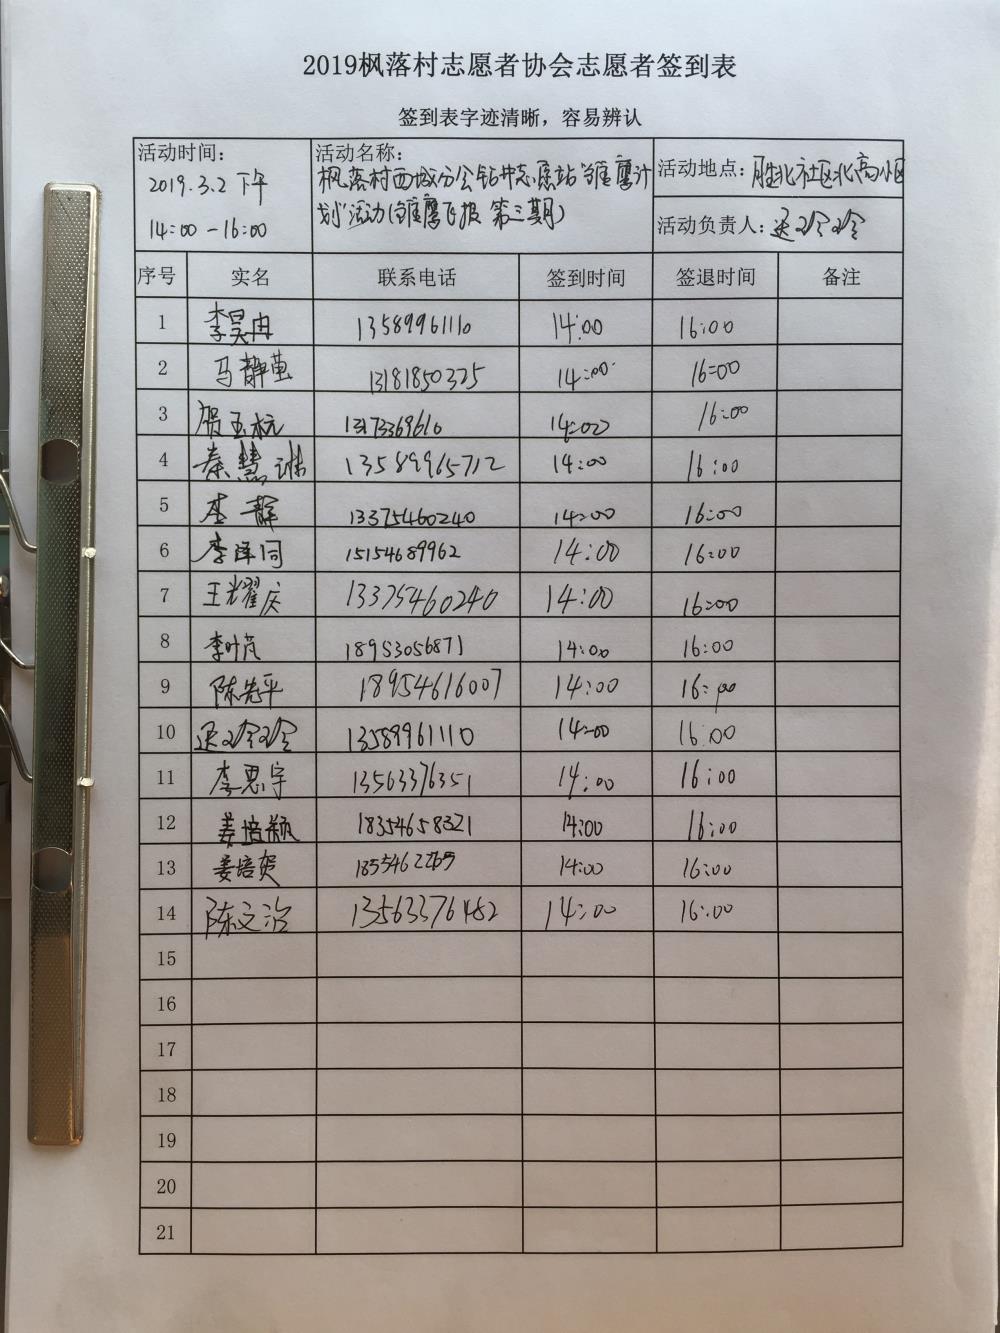 2019枫落村志愿者协会志愿者签到表
签到表字迹清晰，容易辨认
活动时间：
2019.3.2 下午
14:00-16:00
活动名称：
枫落村西城分会钻井志愿站“雏鹰计
划”活动(雏鹰飞报 第三期)
活动地点：胜北社区北高小区
活动负责人：玲玲
序号 实名 联系电话 签到时间 签退时间 备注
1 李昊冉 13589961110 14:00 16:00
2 马静萤 13181850325 14:00 16:00
3 贺玉杭 13173369610 14:00 16:00
4 秦慧琳 13589965712 14:00 16:00
5 李静 13375460240 14:00 16:00
6 李泽同 15154689962 14:00 16:00
7 王耀庆 13375460240 14:00 16:00
8 李叶芃 18953056871 14:00 16:00
9 陈先平 18954616007 14:00 16:00
10 玲玲 13589961110 14:00 16:00
11 李思宇 13563376351 14:00 16:00
12 姜培 18354658321 14:00 16:00
13 姜培贺 14:00 16:00
14 陈文治 13563376482 14:00 16:00
15
16
17
18
19
20
21